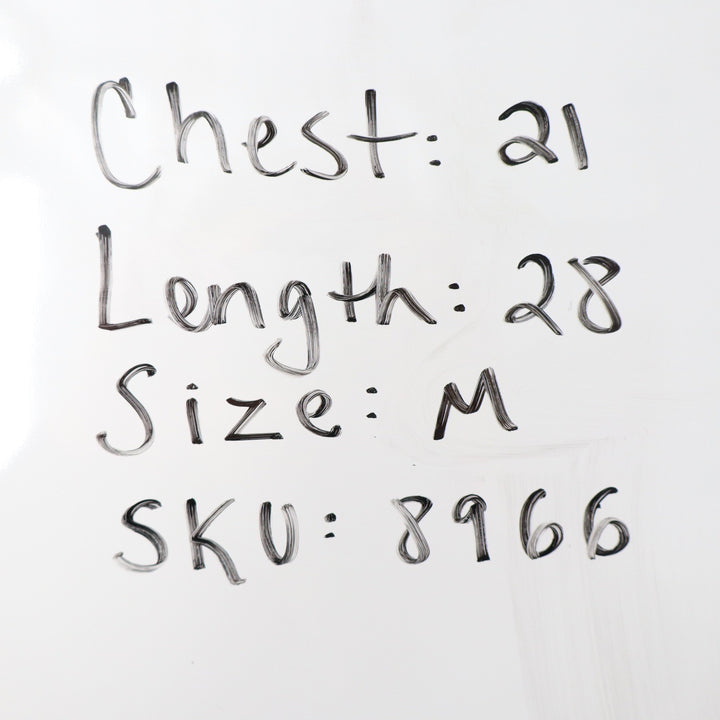 Chest: 21
Length: 28
Size: M
SKU: 8966